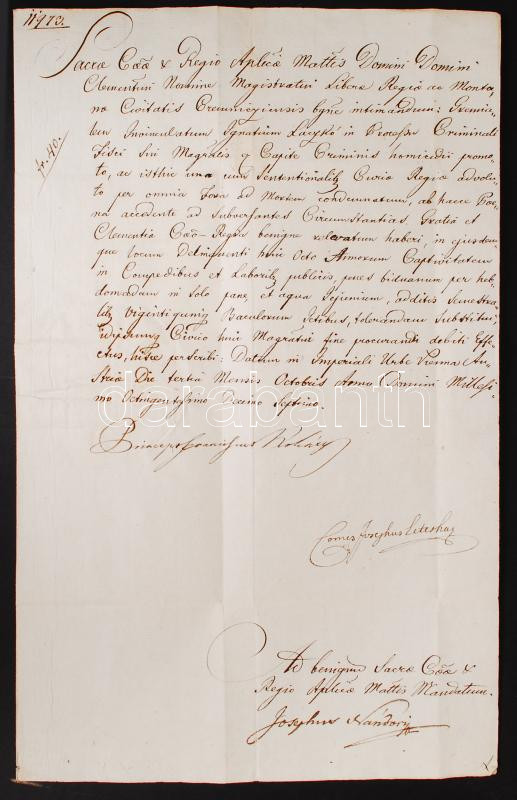 11973.
Sacræ Cæs̃ & Regio Aplicæ Mattis Domini Domini
Clementini Nomine Magistratui Liberæ Regiæ ac Monta-
næ Civitatis Cremniciensis hisce intimandum:
tum Inviculatum Ignatium in Processu Criminali
Fisci sui Magralis q Capite Criminis homicidii promo-
to, ac isthic una cum Sententionalibꝫ Curiæ Regiæ advolu-
to per omnia Fora ad Mortem condemnatum, ab hacce Poe-
na accedente ad Subversantes Circumstantias, Gratia et
Clementia Cæs-Regia benigne relevatum haberi, in ejusdem-
que locum Delinquenti huic Octo Annorum Captivitatem
in Compedibus et Laboribꝫ publicis, penes biduanum per heb-
domadam in solo pane, et aqua Jejunium, additis Semestra-
libꝫ Viginti quinqꝫ Baculorum Ictibus, tolerandam substitui;
Civico huic Magratui fine procurandi debiti Effe-
ctus, hisce perscribi. Datum in Imperiali Urbe Vienna Au-
striæ Die tertia Mensis Octobris Anno Domini Millesi-
mo Octingentesimo Decimo Septimo.
fr. 40.
darabanth
Princeps Franciscus Koháry
Comes Josephus Eszterhaz
Ad benignum Sacræ Cæs̃ &
Regio Aplicæ Mattis Mandatum.
Josephus Nándory